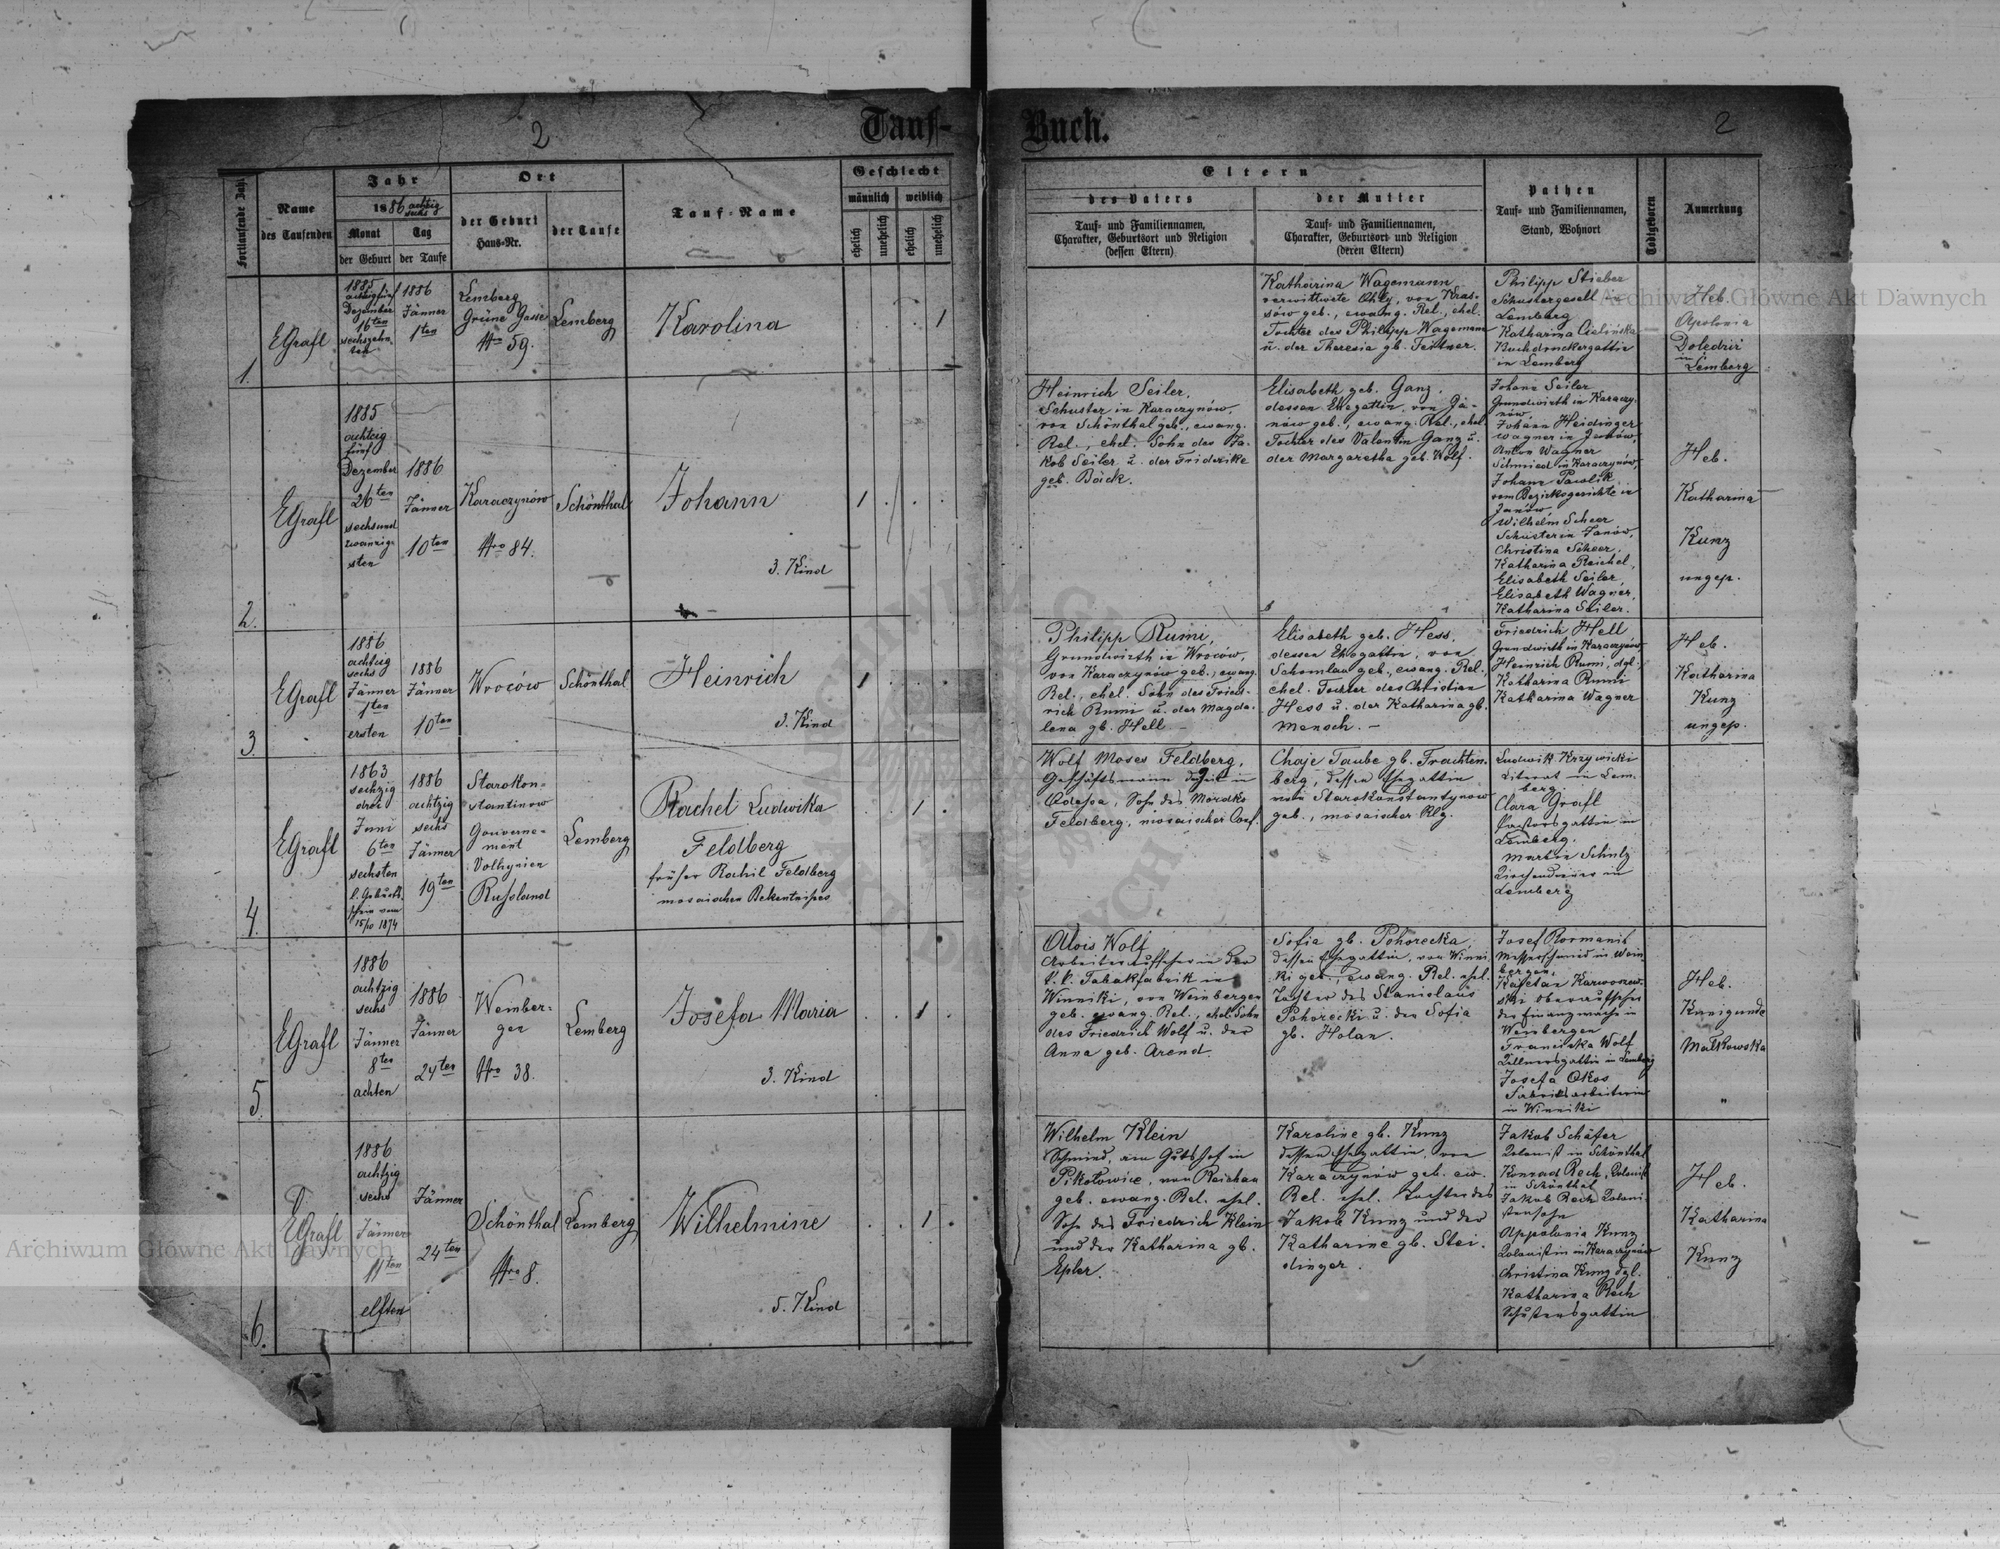 2
Tauf-
Buch.
2
Fortlaufende Zahl
Name
des Taufenden
Jahr
1886 achtzig sechs
Monat
Tag
der Geburt
der Taufe
Ort
der Geburt
Haus-Nr.
der Taufe
Tauf-Name
Geschlecht
männlich
weiblich
ehelich
unehelich
ehelich
unehelich
Eltern
des Vaters
Tauf- und Familiennamen,
Charakter, Geburtsort und Religion
(dessen Eltern)
der Mutter
Tauf- und Familiennamen,
Charakter, Geburtsort und Religion
(deren Eltern)
Pathen
Tauf- und Familiennamen,
Stand, Wohnort
Todtgeboren
Anmerkung
1.
EGrafl
1885
achtzigfünf
Dezember
16ten
sechszehn-
ten
1886
Jänner
1ten
Lemberg
Grüne Gasse
Nro 59.
Lemberg
Karolina
1
Katharina Wagemann
verwittwete Ohly, von Kras-
sow geb., ewang. Rel., ehel.
Tochter des Philipp Wagemann
u. der Theresia gb. Teitner.
Philipp Stieber
Schustergesell
Lemberg
Katharina Cielińska
Buchdruckergattin
in Lemberg
Heb.
Apolonia
in
Lemberg
2.
EGrafl
1885
achtzig
fünf
Dezember
26ten
sechsund
zwanzig-
sten
1886
Jänner
10ten
Karaczynów
Nro 84.
Schönthal
Johann
3. Kind
1
Heinrich Seiler,
Schuster in Karaczynów,
von Schönthal geb., ewang.
Rel., ehel. Sohn des Ja-
kob Seiler u. der Friderike
geb. Bäck.
Elisabeth geb. Ganz,
dessen Ehegattin, von Ja-
nów geb., ewang. Rel., ehel.
Tochter des Valentin Ganz u.
der Margaretha geb. Wolf.
Johann Seiler
Grundwirth in Karaczy-
nów,
Johann Heidinger
Wagner in Janów,
Anton Wagner
Schmied in Karaczynów,
Johann Pawlik
vom Bezirksgerichte in
Janów,
Wilhelm Scheer
Schuster in Janów,
Christina Scheer,
Katharina Reichel,
Elisabeth Seiler,
Elisabeth Wagner,
Katharina Seiler.
Heb.
Katharina
Kunz
ungep.
3.
EGrafl
1886
achtzig
sechs
Jänner
1ten
ersten
1886
Jänner
10ten
Wroców
Schönthal
Heinrich
3. Kind
1
Philipp Rumi,
Grundwirth in Wroców,
von Karaczynów geb., ewang.
Rel., ehel. Sohn des Fried-
rich Rumi u. der Magda-
lena gb. Hell. —
Elisabeth geb. Hess,
dessen Ehegattin, von
Schomlau geb., ewang. Rel.,
ehel. Tochter des Christian
Hess u. der Katharina gb.
Mensch. —
Friedrich Hell
Grundwirth in Karaczynów
Heinrich Rumi, dgl.
Katharina Rumi
Katharina Wagner
Heb.
Katharina
Kunz
ungep.
4.
EGrafl
1863
sechzig
drei
Juni
6ten
sechsten
l. Geburts-
schein vom
15/10 1874
1886
achtzig
sechs
Jänner
19ten
Starokon-
stantinow
Gouverne-
ment
Volhynien
Russland
Lemberg
Rachel Ludwika
Feldberg
früher Rachil Feldberg
mosaischen Bekentnisses
1
Wolf Moses Feldberg,
Geschäftsmann derzeit in
Odessa, Sohn des Mordko
Feldberg, mosaischer Conf.
Chaje Taube gb. Trachten-
berg, dessen Ehegattin
von Starokonstantynow
geb., mosaischer Rlg.
Ludwik Krzywicki
Literat in Lem-
berg.
Clara Grafl
Pastorsgattin in
Lemberg.
Martin Schulz
Kirchendiener in
Lemberg
5.
EGrafl
1886
achtzig
sechs
Jänner
8ten
achten
1886
Jänner
24ten
Weinber-
gen
Nro 38.
Lemberg
Josefa Maria
3. Kind
1
Alois Wolf
Arbeiteraufseher in der
k. k. Tabakfabrik in
Winniki, von Weinbergen
geb. ewang. Rel., ehel. Sohn
des Friedrich Wolf u. der
Anna geb. Arend.
Sofia gb. Pohorecka,
dessen Ehegattin, von Winni-
ki geb., ewang. Rel. ehel.
Tochter des Stanislaus
Pohorecki u. der Sofia
gb. Holan.
Josef Rormanik
Messerschmied in Wein-
bergen.
Kajetan Karwoszew-
ski Oberaufseher
der Finanzwache in
Weinbergen
Franciska Wolf
Zöllnersgattin in Lemberg
Josefa Okos
Fabriksarbeiterin
in Winniki
Heb.
Kunigunde
Malkowska
"
6.
EGrafl
1886
achtzig
sechs
Jänner
11ten
elften
Jänner
24ten
Schönthal
Nro 8.
Lemberg
Wilhelmine
5. Kind
1
Wilhelm Klein
Schmied, am Gutshof in
Pikolowice, von Reichau
geb. ewang. Rel. ehel.
Sohn des Friedrich Klein
und der Katharina gb.
Epler.
Karoline gb. Kunz
dessen Ehegattin, von
Karaczynów geb. ew.
Rel. ehel. Tochter des
Jakob Kunz und der
Katharine gb. Stei-
dinger.
Jakob Schäfer
Kolonist in Schönthal
Konrad Rech, Kolonist
in Schönthal
Jakob Rech Koloni-
stensohn
Appolonia Kunz
Kolonistin in Karaczynów
Christina Kunz dgl.
Katharina Rech
Schustersgattin
Heb.
Katharina
Kunz
Archiwum Główne Akt Dawnych
Archiwum Główne Akt Dawnych